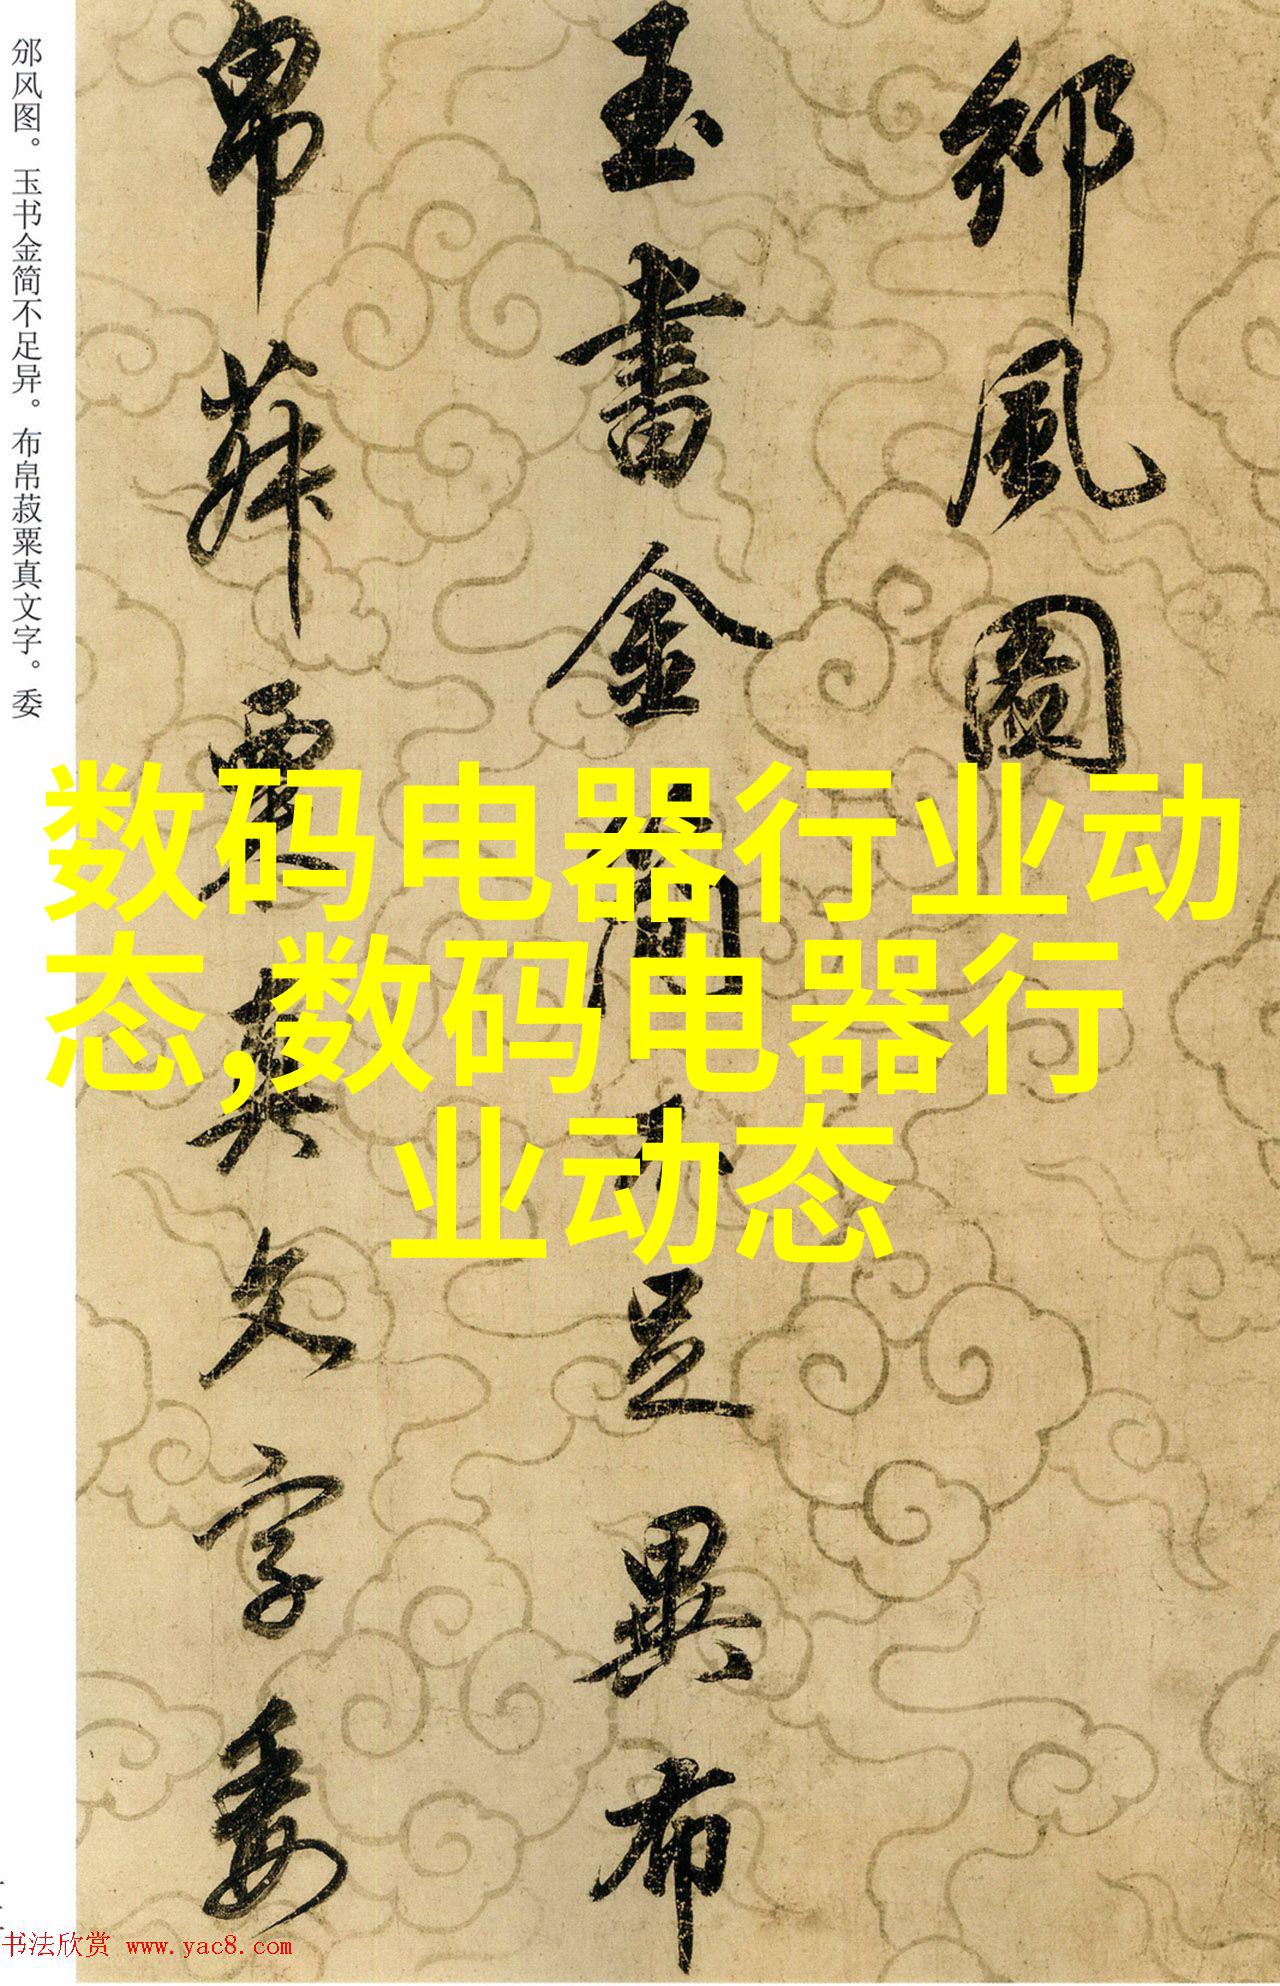 邠風圖
玉書金簡不足異布
帛菽粟真文字委
邠风图。玉书金简不足异。布帛菽粟真文字。委
数码电器行业动
态,数码电器行
业动态
书法欣赏 www.yac8.com